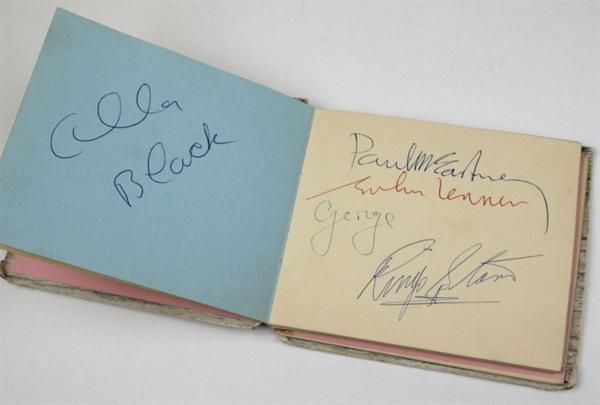 Cilla
Black
Paul McCartney
John Lennon
George
Ringo Starr